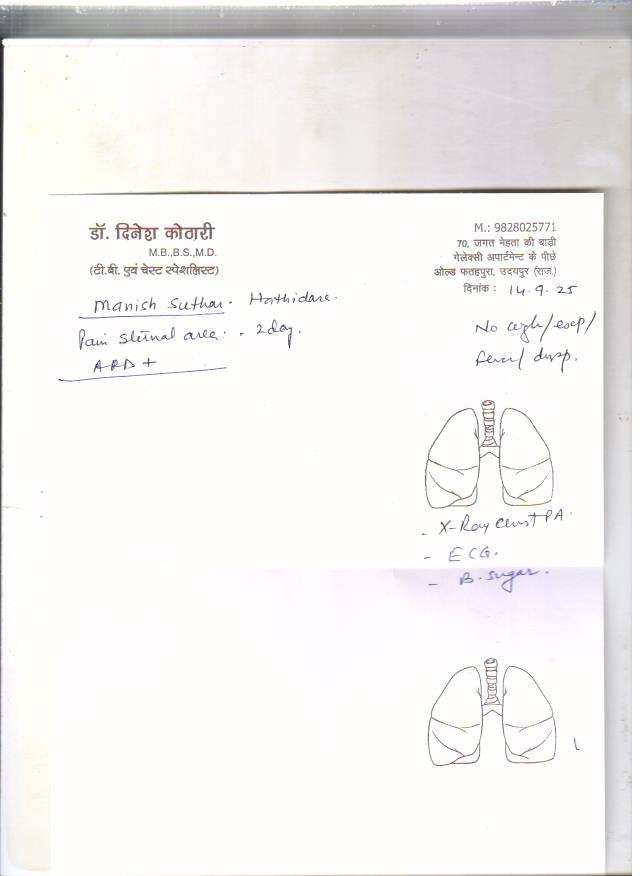 डॉ. दिनेश कोठारी
M.B.,B.S.,M.D.
(टी.बी. एवं चेस्ट स्पेशलिस्ट)
M.: 9828025771
70, जगत मेहता की बाड़ी
गेलेक्सी अपार्टमेन्ट के पीछे
ओल्ड फतहपुरा, उदयपुर (राज.)
दिनांक : 14.9.25
Manish Suthar. Hathidara.
Pain sternal area. - 2day.
APD +
No cugh/
Fever/ dysp.
- X-Ray PA.
- ECG.
- B.sugar.